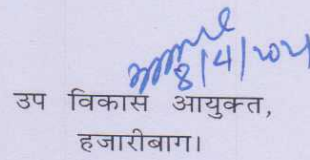 8/4/2021
उप विकास आयुक्त,
हजारीबाग।